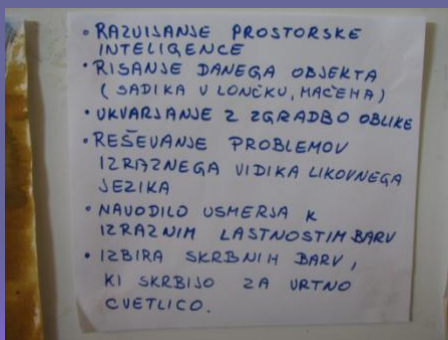 • RAZVIJANJE PROSTORSKE
INTELIGENCE
• RISANJE DANEGA OBJEKTA
( SADIKA V LONČKU, MAČEHA )
• UKVARJANJE Z ZGRADBO OBLIKE
• REŠEVANJE PROBLEMOV
IZRAZNEGA VIDIKA LIKOVNEGA
JEZIKA
• NAVODILO USMERJA K
IZRAZNIM LASTNOSTIM BARV
• IZBIRA SKRBNIH BARV,
KI SKRBIJO ZA VRTNO
CVETLICO.